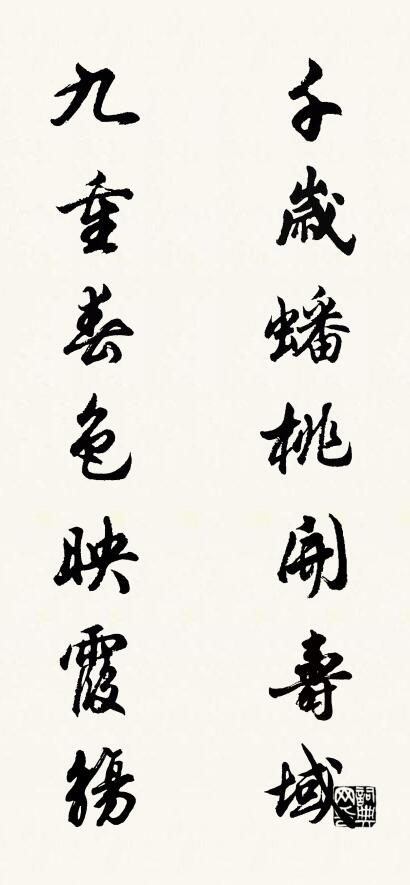 千歲蟠桃開壽域
九重春色映霞觴
詞典網